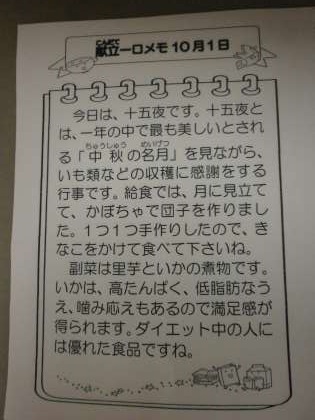 献立一口メモ 10月1日
今日は、十五夜です。十五夜と
は、一年の中で最も美しいとされ
る「中秋の名月」を見ながら、
いも類などの収穫に感謝をする
行事です。給食では、月に見立て
て、かぼちゃで団子を作りまし
た。1つ1つ手作りしたので、き
なこをかけて食べて下さいね。
副菜は里芋といかの煮物です。
いかは、高たんぱく、低脂肪なう
え、噛み応えもあるので満足感が
得られます。ダイエット中の人に
は優れた食品ですね。